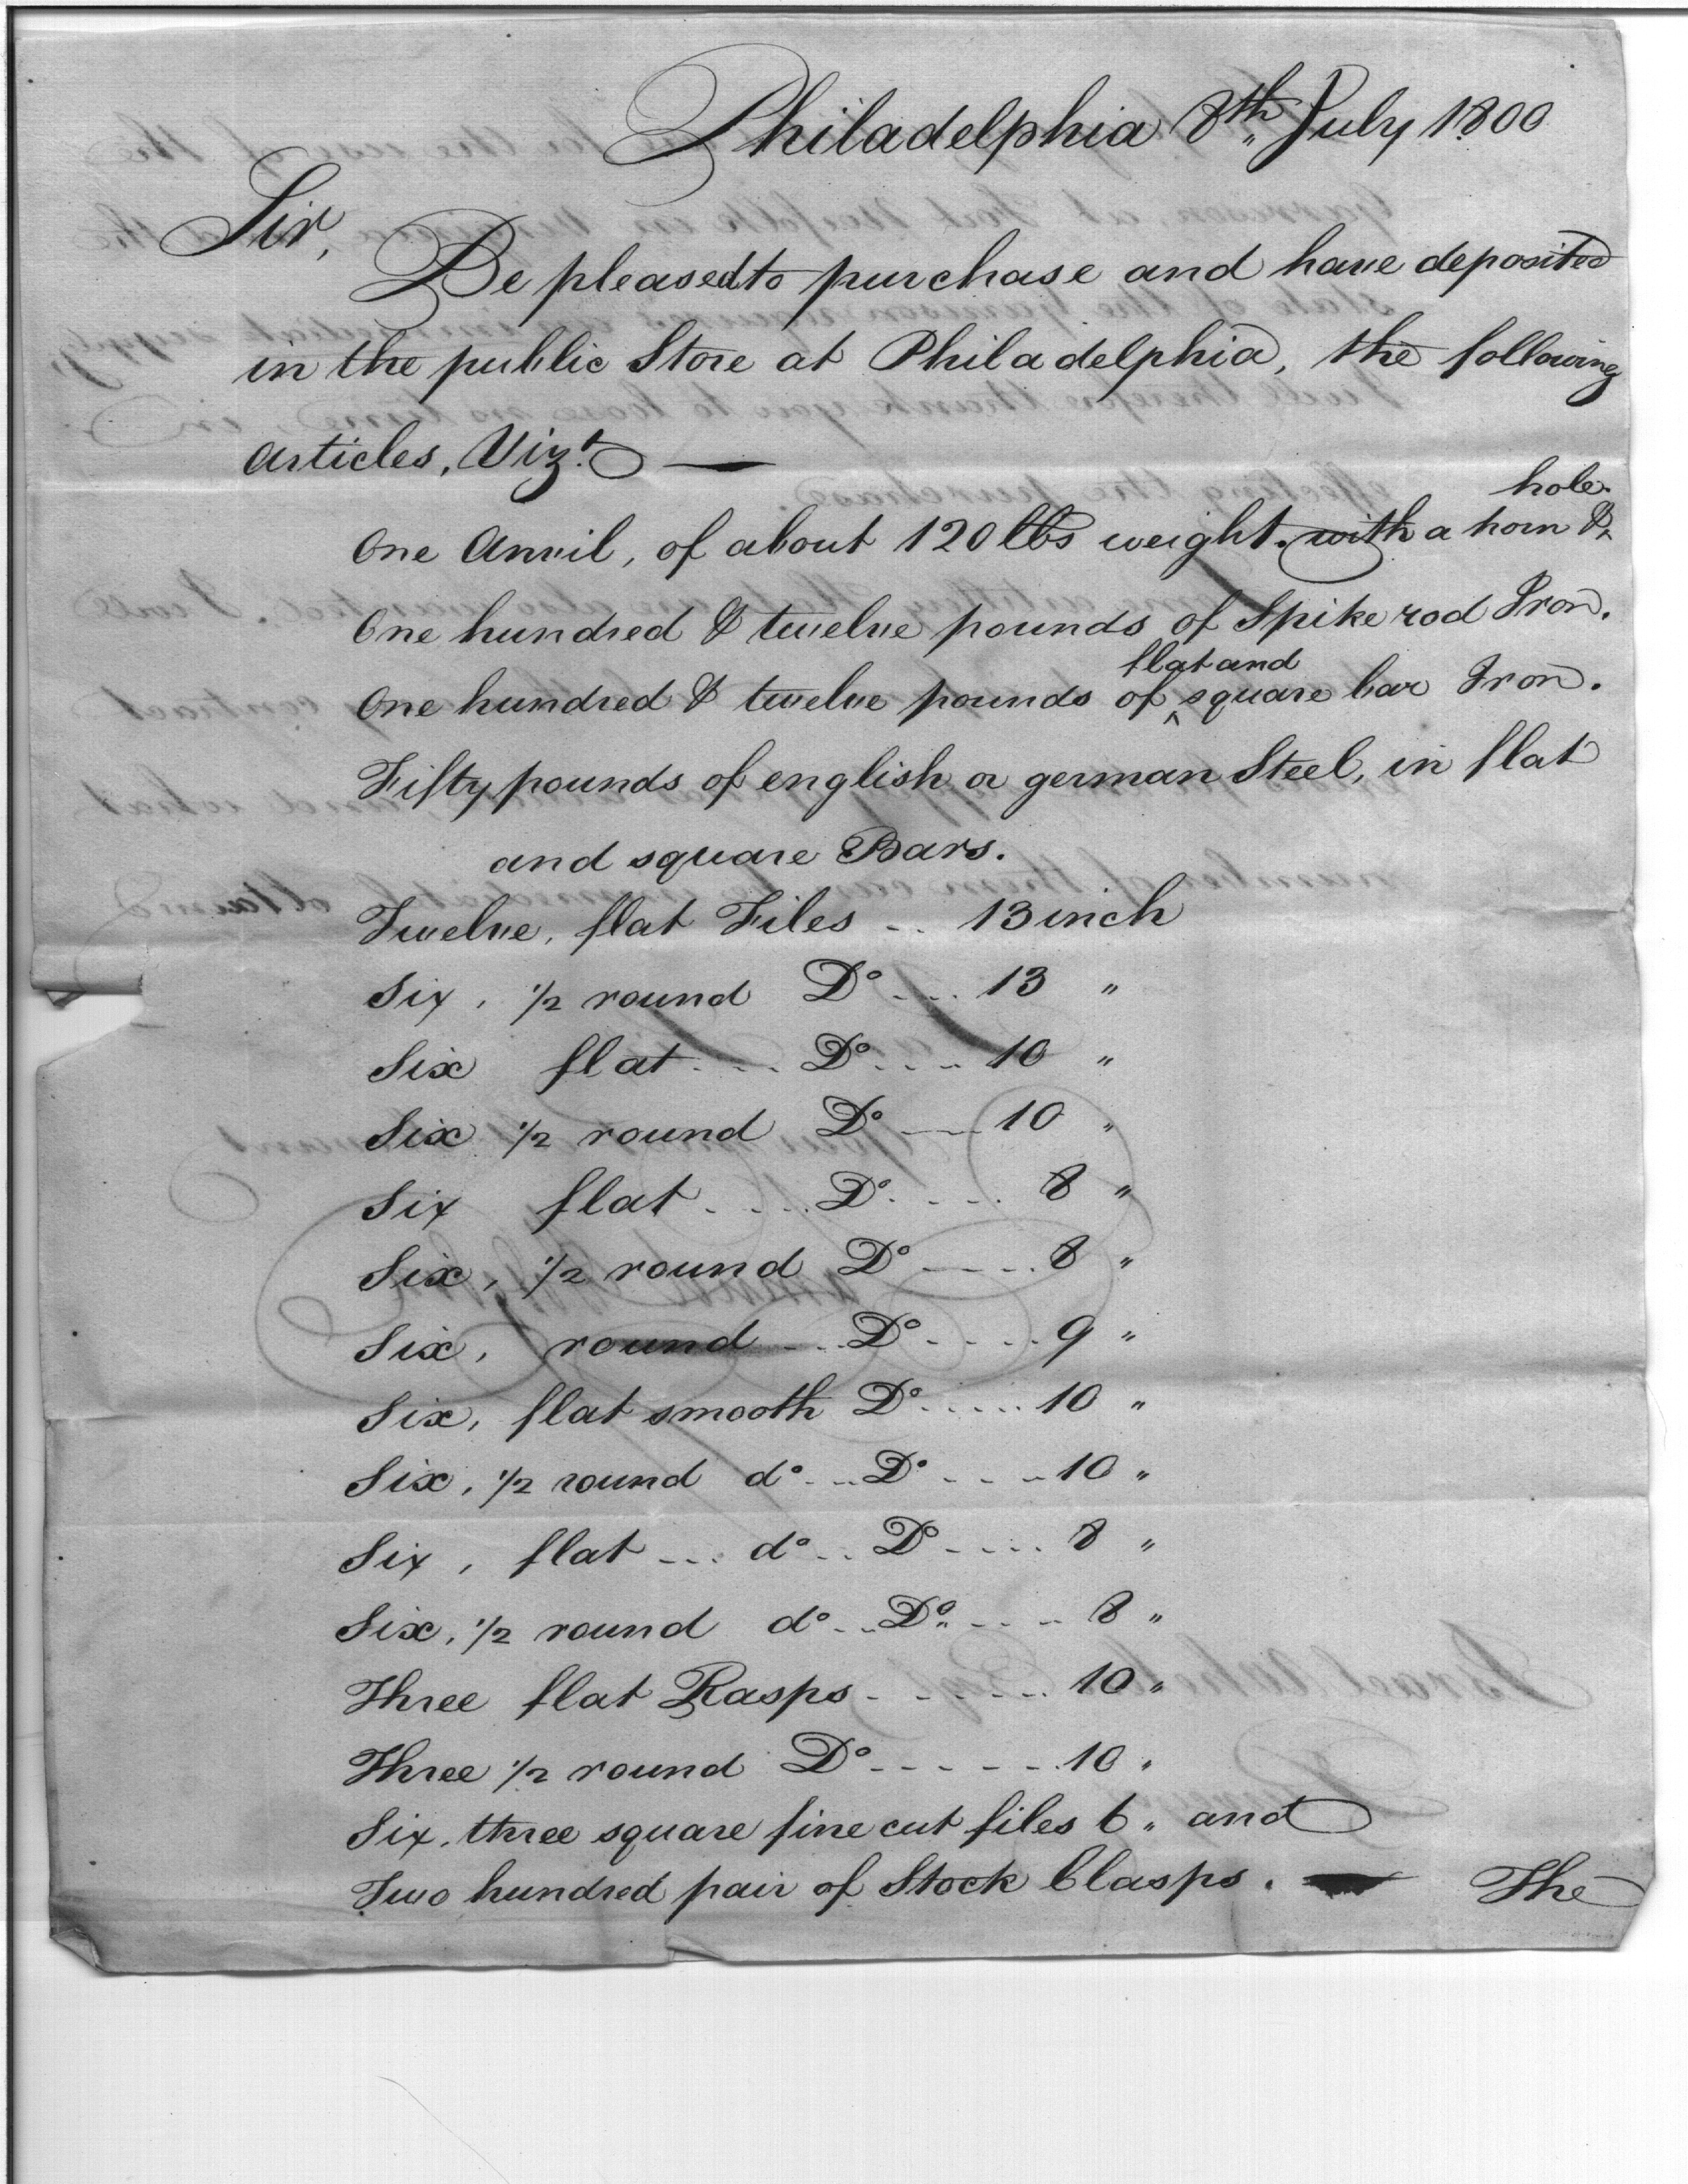 Philadelphia 8th July 1800
Sir,
Be pleased to purchase and have deposited
in the public Store at Philadelphia, the following
articles, Vizt. —
hole.
One Anvil, of about 120 lbs weight. with a horn &
One hundred & twelve pounds of Spike rod Iron.
flat and
One hundred & twelve pounds of ^ square bar Iron.
Fifty pounds of english or german Steel, in flat
and square Bars.
Twelve, flat Files .. 13 inch
Six, 1/2 round Do ... 13 "
Six flat .... Do .... 10 "
Six 1/2 round Do ---- 10 "
Six flat .... Do .... 8 "
Six, 1/2 round Do .... 8 "
Six, round ... Do .... 9 "
Six, flat smooth Do ..... 10 "
Six, 1/2 round do ... Do .... 10 "
Six, flat ... do .. Do .... 8 "
Six, 1/2 round do .. Do .... 8 "
Three flat Rasps ...... 10 "
Three 1/2 round Do ...... 10 "
Six, three square fine cut files 6 " and
Two hundred pair of Stock Clasps. — The